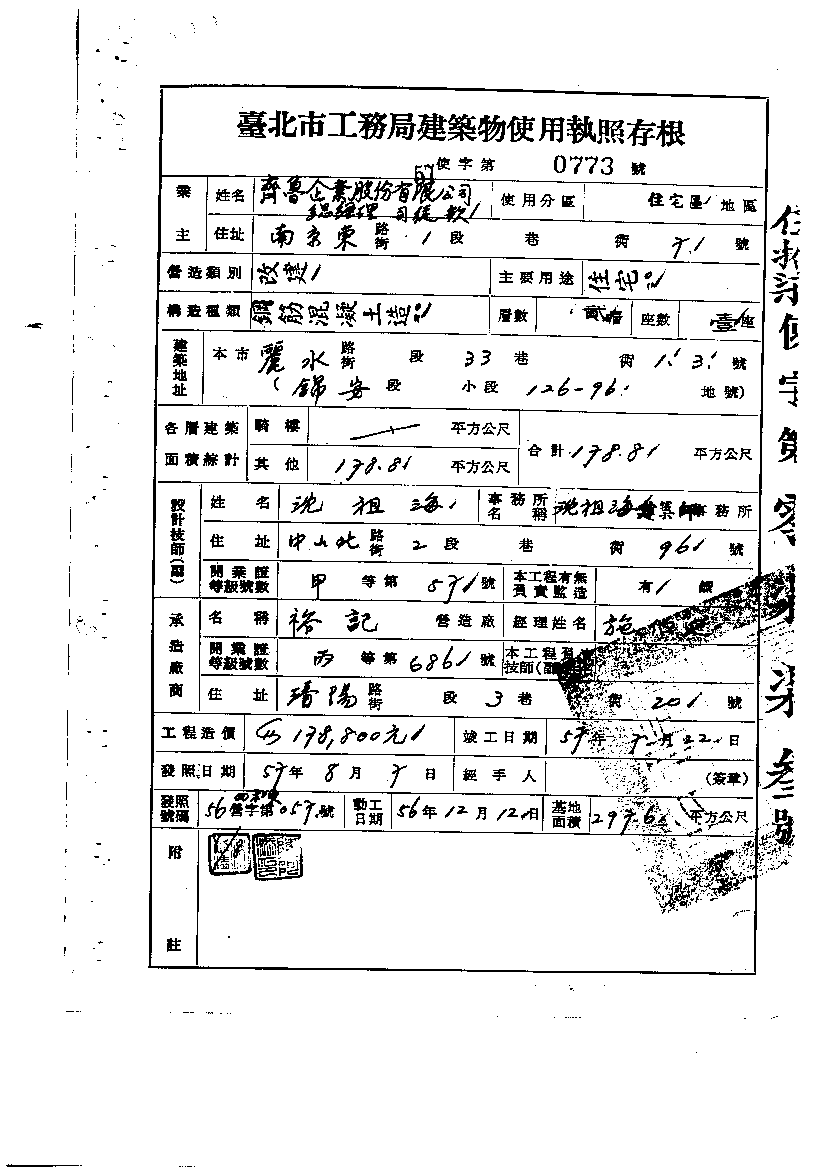 臺北市工務局建築物使用執照存根
57使字第 0773 號
業主 姓名 齊魯企業股份有限公司 總經理 司徒歡 使用分區 住宅區 地區
住址 南京東路街 1 段 巷 街 71 號
營造類別 改建 主要用途 住宅
構造種類 鋼筋混凝土造 層數 貳層 座數 壹座
建築地址 本市 麗水 路街 段 33 巷 街 1.3. 號
(錦安 段 小段 126-96 地號)
各層建築面積綜計 騎樓 平方公尺 合計 178.81 平方公尺
其他 178.81 平方公尺
設計技師(副) 姓名 沈祖海 事務所名稱 沈祖海建築師事務所
住址 中山北 路街 2 段 巷 街 96 號
開業證等級號數 甲 等第 57 號 本工程有無負責監造 有
承造廠商 名稱 裕記 營造廠 經理姓名 施
開業證等級號數 丙 等第 686 號 本工程 技師(副
住址 路街 段 3 巷 街 20 號
工程造價 178,800元 竣工日期 57年 7月 22 日
發照日期 57年 8月 7日 經手人 (簽章)
發照號碼 56營字第 057 號 動工日期 56年12月12日 基地面積 平方公尺
附註
使字第零柒柒參號